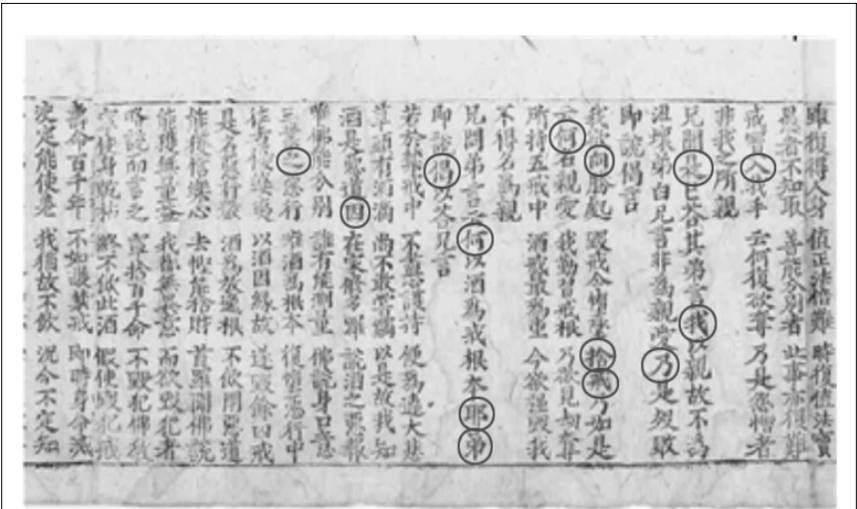 雖復得人身 值正法倍難 時復值法寶
愚者不知取 善能分別者 此事亦復難
戒寶入我手 云何復欲奪 乃是怨憎者
非我之所親
兄聞是已答其弟言我以親故不為
沮壞弟白兄言非為親愛乃是殘敗
即說偈言
我欲向勝處 毀戒令墮墜 捨戒乃如是
云何名親愛 我勤習戒根 乃欲見劫奪
所持五戒中 酒戒最為重 今欲強毀我
不得名為親
兄問弟言云何以酒為戒根本耶弟
即說偈以答兄言
若於禁戒中 不盡心護持 便為違大悲
草頭有酒滴 尚不敢嘗觸 以是故我知
酒是惡道因 在家修多羅 說酒之惡報
唯佛能分別 誰有能測量 佛說身口意
三業之惡行 唯酒為根本 復墮惡行中
往昔優婆夷 以酒因緣故 遂毀餘四戒
是名惡行數 酒為放逸根 不飲閉惡道
能獲信樂心 去慳能捨財 首羅聞佛說
能獲無量益 我都無異意 而欲毀犯者
略說而言之 寧捨百千命 不毀犯佛教
寧使身乾枯 終不飲此酒 假使毀犯戒
壽命百千年 不如護禁戒 即時身命滅
決定能使差 我猶故不飲 況今不定知